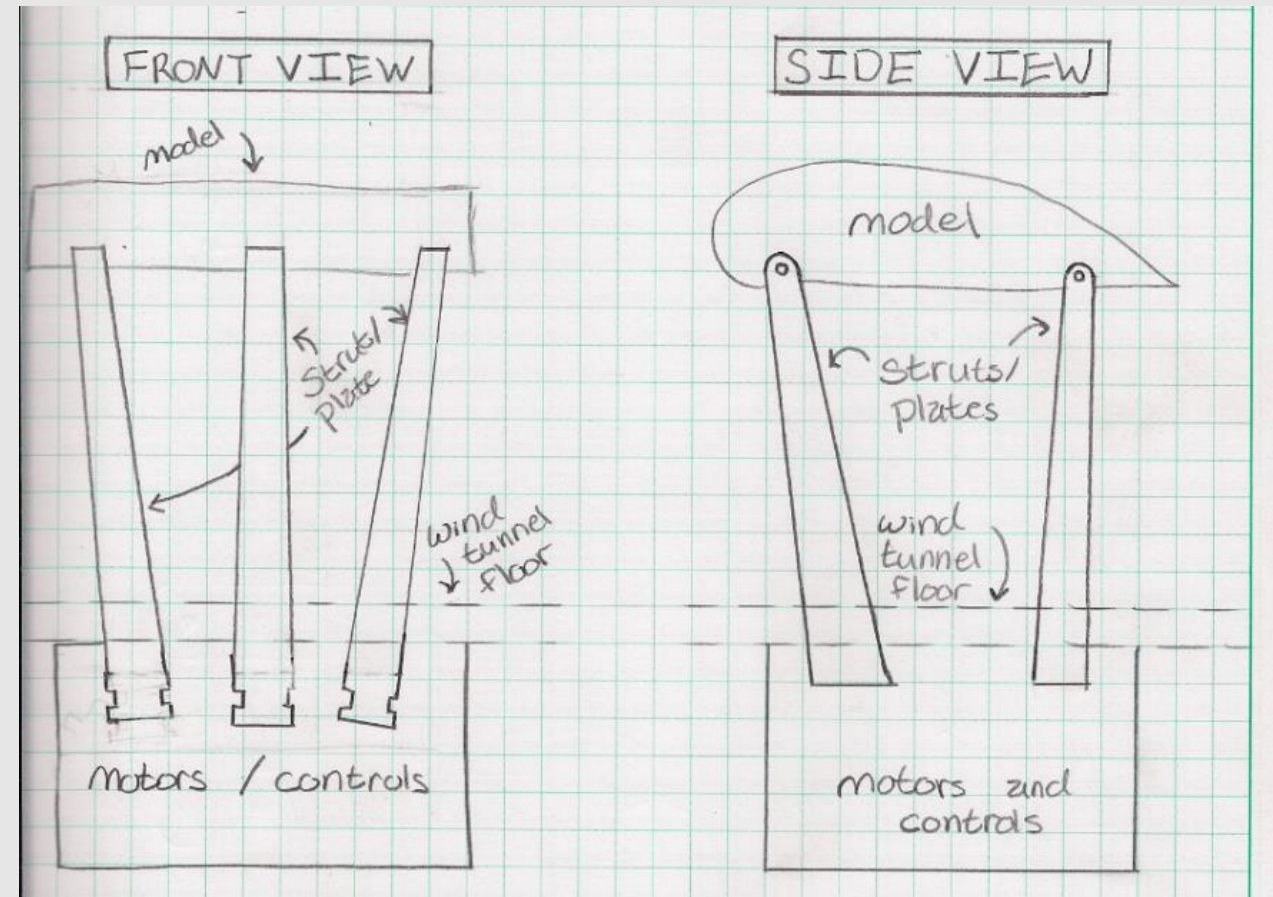 FRONT VIEW
model
Struts/
plate
wind
tunnel
floor
motors / controls
SIDE VIEW
model
struts/
plates
wind
tunnel
floor
motors and
controls